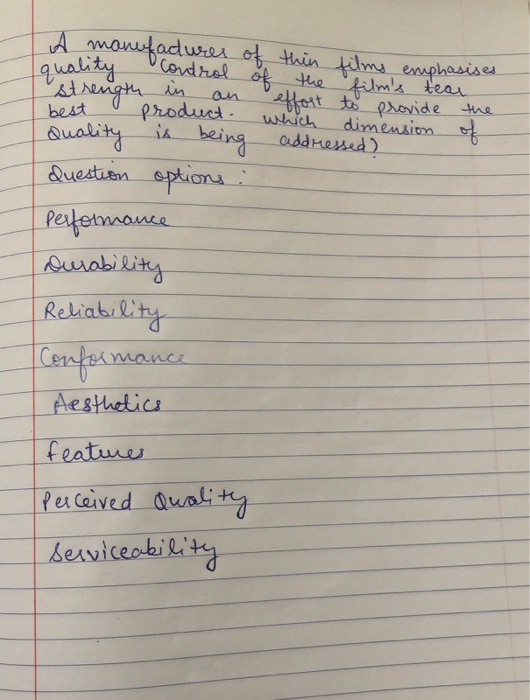 A manufadures of thin films emphasises
quality control of the film's tear
strength in an effort to provide the
best product. which dimension of
Quality is being addressed?
Question options:
Performance
Durability
Reliability
Conformance
Aesthetics
features
Perceived Quality
Serviceability